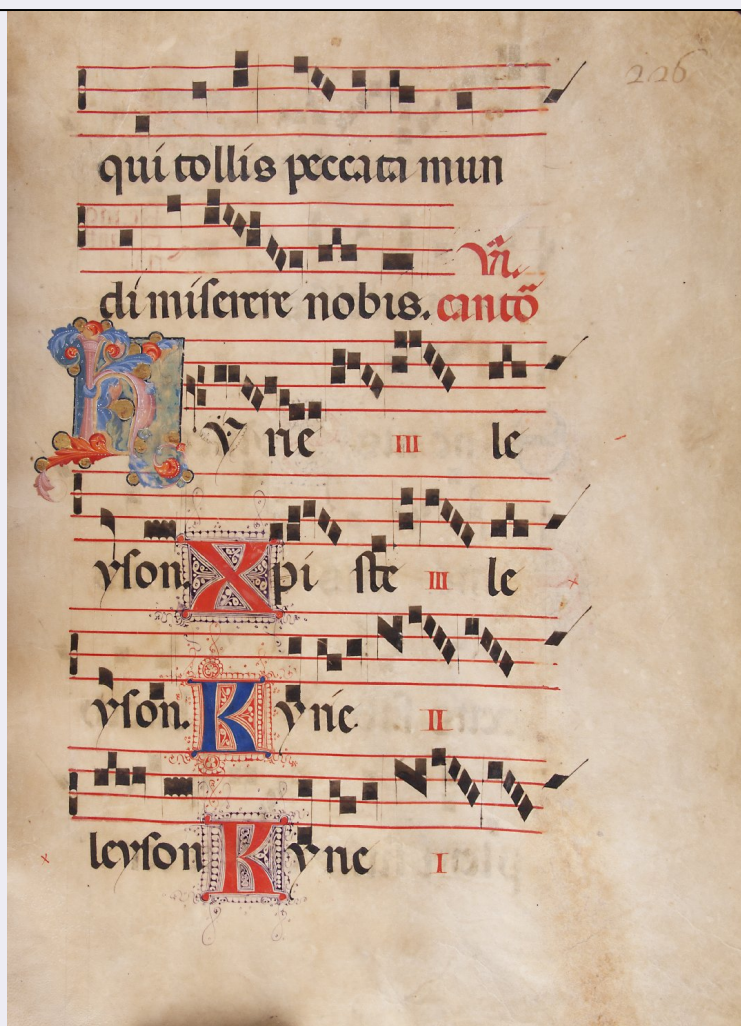 226
qui tollis peccata mun
di miserere nobis. cantō
Kyrie III le
yson. Xpi ste III le
yson. Kyrie II
leyson Kyrie I